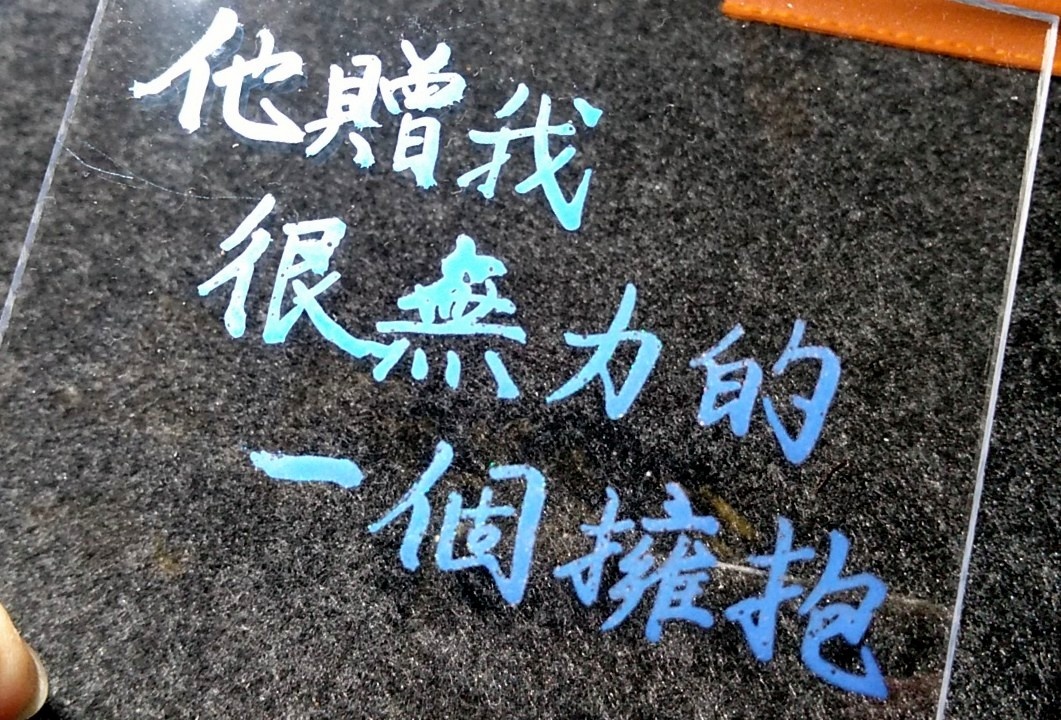 他贈我
很無力的
一個擁抱